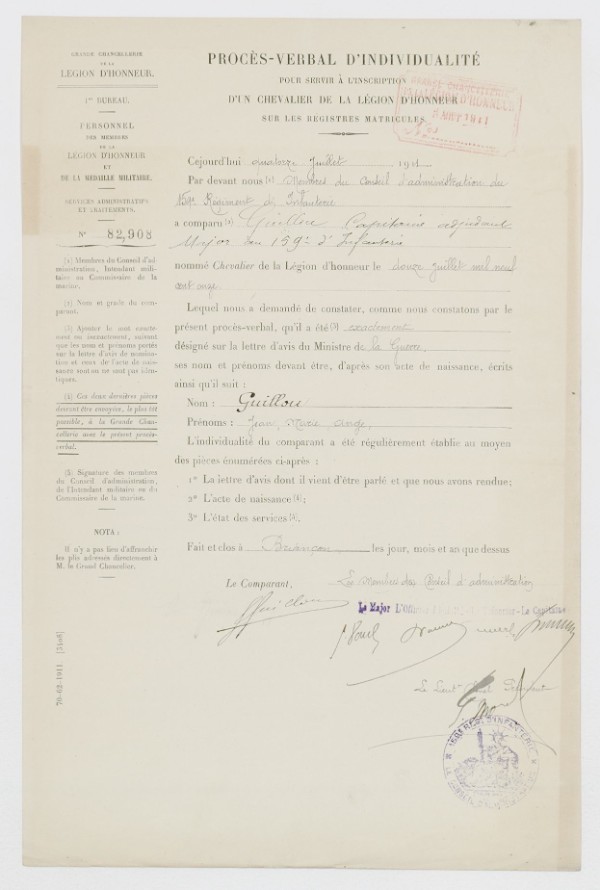 GRANDE CHANCELLERIE
DE LA
LÉGION D'HONNEUR.
1er BUREAU.
PERSONNEL
DES MEMBRES
DE LA
LÉGION D'HONNEUR
ET
DE LA MÉDAILLE MILITAIRE.
SERVICES ADMINISTRATIFS
ET TRAITEMENTS.
N° 82,908
(1) Membres du Conseil d'ad-
ministration, Intendant mili-
taire ou Commissaire de la
marine.
(2) Nom et grade du com-
parant.
(3) Ajouter le mot exacte-
ment ou inexactement, suivant
que les nom et prénoms portés
sur la lettre d'avis de nomina-
tion et ceux de l'acte de nais-
sance sont ou ne sont pas iden-
tiques.
(4) Ces deux dernières pièces
devront être envoyées, le plus tôt
possible, à la Grande Chan-
cellerie avec le présent procès-
verbal.
(5) Signature des membres
du Conseil d'administration,
de l'Intendant militaire ou du
Commissaire de la marine.
NOTA:
Il n'y a pas lieu d'affranchir
les plis adressés directement à
M. le Grand Chancelier.
70-02-1911. [3408]
PROCÈS-VERBAL D'INDIVIDUALITÉ
POUR SERVIR À L'INSCRIPTION
D'UN CHEVALIER DE LA LÉGION D'HONNEUR
SUR LES REGISTRES MATRICULES.
GRANDE CHANCELLERIE
DE LA LÉGION D'HONNEUR
AOUT 1911
Cejourd'hui quatorze juillet 1911
Par devant nous (1) Membres du Conseil d'administration du
159e Régiment d'Infanterie
a comparu (2) Guillou Capitaine adjudant
Major au 159e d'Infanterie
nommé Chevalier de la Légion d'honneur le douze juillet mil neuf
cent onze
Lequel nous a demandé de constater, comme nous constatons par le
présent procès-verbal, qu'il a été (3) exactement
désigné sur la lettre d'avis du Ministre de la Guerre,
ses nom et prénoms devant être, d'après son acte de naissance, écrits
ainsi qu'il suit :
Nom : Guillou
Prénoms : Jean Marie Ange
L'individualité du comparant a été régulièrement établie au moyen
des pièces énumérées ci-après :
1° La lettre d'avis dont il vient d'être parlé et que nous avons rendue;
2° L'acte de naissance (4);
3° L'état des services (4).
Fait et clos à Briançon les jour, mois et an que dessus
Le Comparant, Les Membres du Conseil d'administration
Guillou
Le Major L'Officier Le Capitaine
Le Lieut Colonel Président